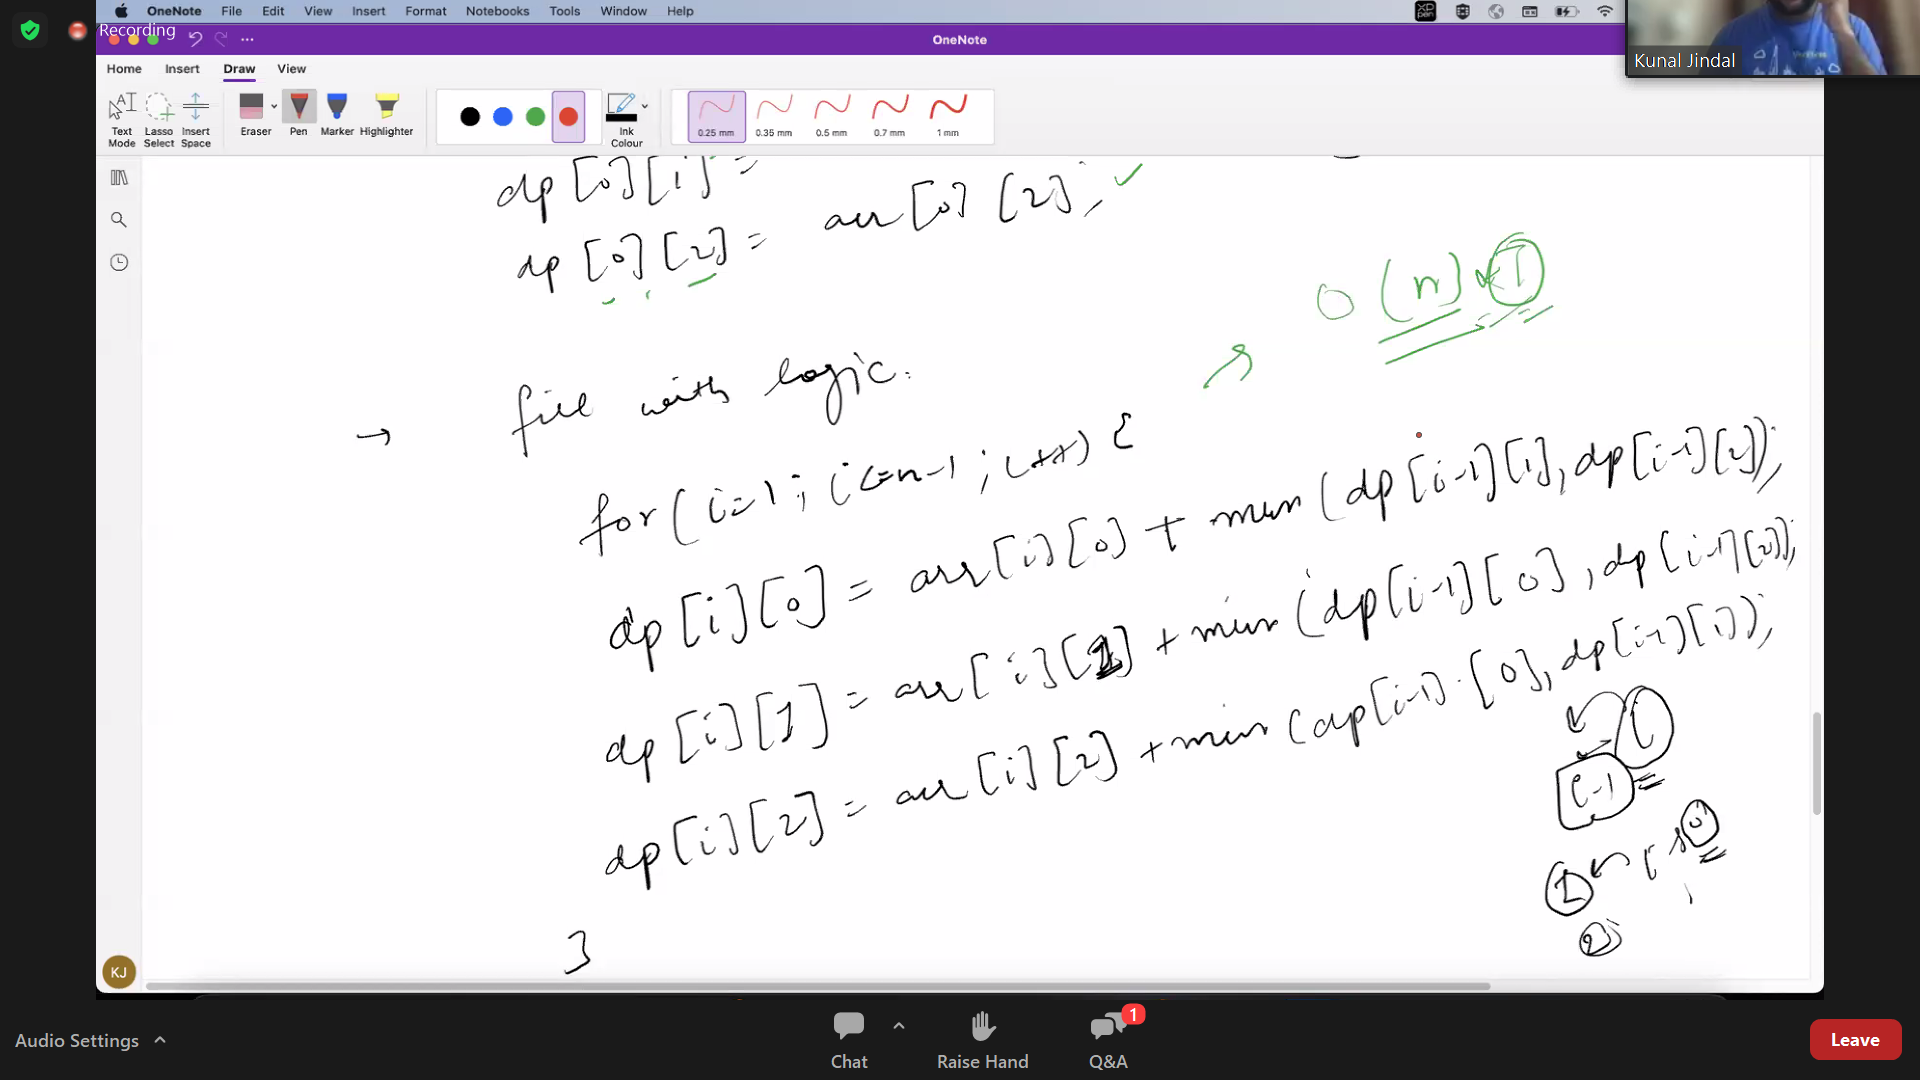 OneNote File Edit View Insert Format Notebooks Tools Window Help
Recording
OneNote
Kunal Jindal
Home Insert Draw View
Text Mode Lasso Select Insert Space Eraser Pen Marker Highlighter Ink Colour 0.25 mm 0.35 mm 0.5 mm 0.7 mm 1 mm
dp [0] [1] =
dp [0] [2] = arr [0] [2];
O (n)
→ fill with logic.
for (i=1; i<=n-1; i++) {
dp [i] [0] = arr [i] [0] + min (dp [i-1] [1], dp [i-1] [2]);
dp [i] [1] = arr [i] [1] + min (dp [i-1] [0], dp [i-1] [2]);
dp [i] [2] = arr [i] [2] + min (dp [i-1] [0], dp [i-1] [1]);
i
i-1
0
1
2
}
KJ
Audio Settings
Chat
Raise Hand
1
Q&A
Leave